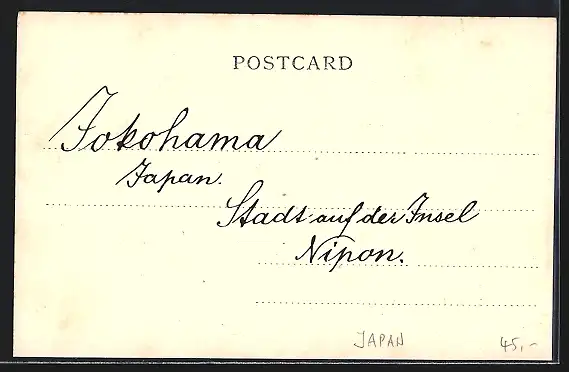 POSTCARD
Jokohama
Japan.
Stadt auf der Insel
Nipon.
JAPAN 45,-